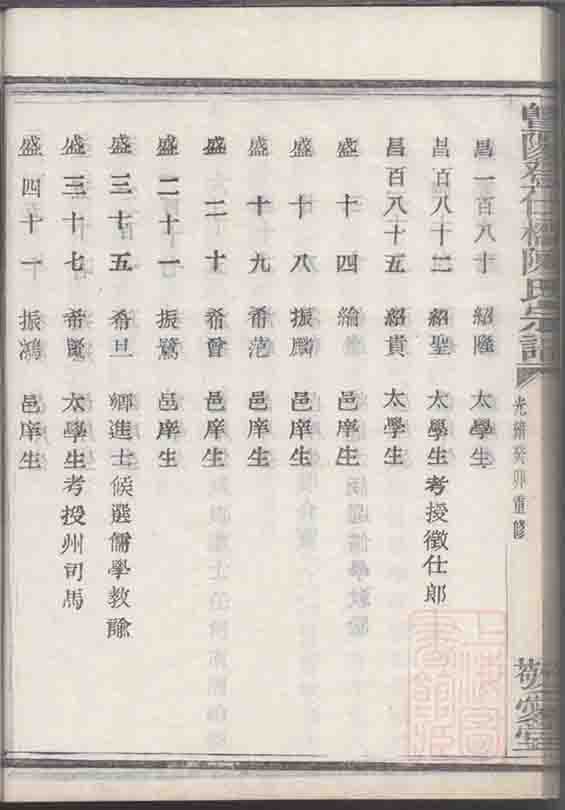 豐陽登仕橋陳氏宗譜
光緒癸卯重修
敬愛堂
昌一百八十 紹隆 太學生
昌百八十二 紹聖 太學生考授徵仕郎
昌百八十五 紹貴 太學生
盛十四 綸 邑庠生
盛十八 振麟 邑庠生
盛十九 希范 邑庠生
盛二十 希曾 邑庠生
盛二十一 振鷺 邑庠生
盛三十五 希旦 鄉進士候選儒學教諭
盛三十七 希賢 太學生考授州司馬
盛四十一 振鴻 邑庠生
上海圖書館藏